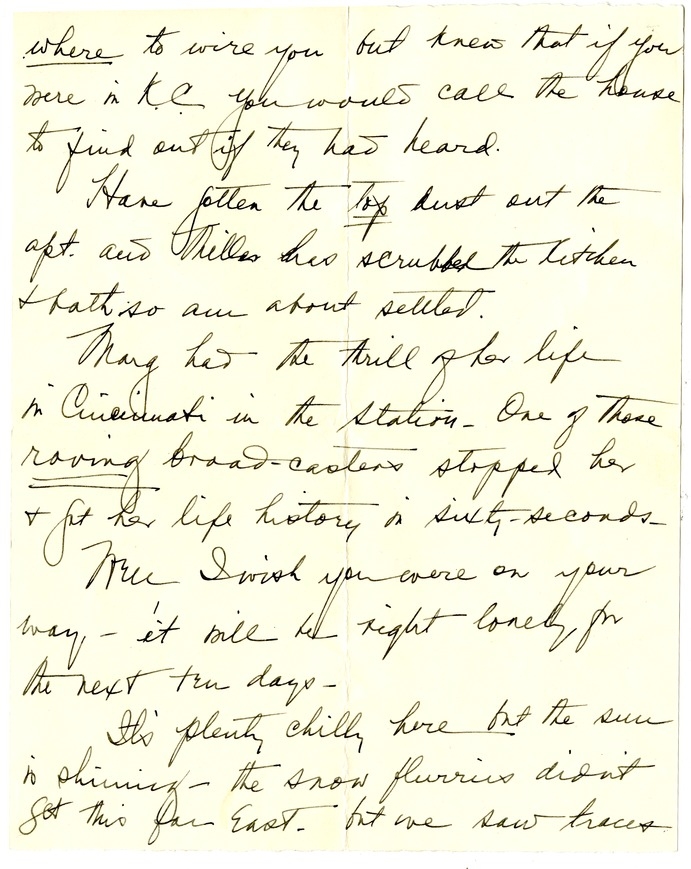 where to wire you but knew that if you
were in K.C. you would call the house
to find out if they had heard.
Have gotten the top dust out the
apt. and has scrubbed the kitchen
& bath so am about settled.
Marg had the thrill of her life
in Cincinnati in the station - One of those
roving broad-casters stopped her
& got her life history in sixty-seconds -
Well I wish you were on your
way, - it will be right lonely for
the next ten days -
It's plenty chilly here but the sun
is shining - the snow flurries didn't
get this far East - but we saw traces